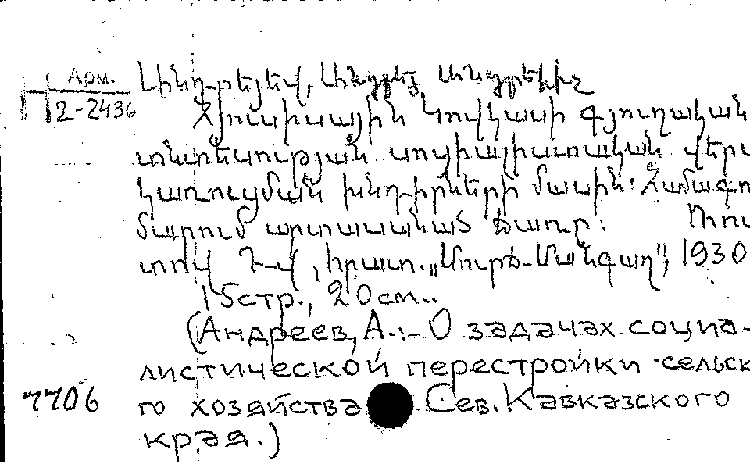 Арм.
2-2436
Անդրեյեվ, Անդրեյ Անդրեեվիչ
Հյուսիսային Կովկասի գյուղական
տնտեսության սոցիալիստական վերա
կառուցման խնդիրների մասին։ Համագու
մարում արտասանած ճառը։ Ռոս
տով Դ-վ, հրատ. „Մուրճ-Մանգաղ”, 1930
15 стр., 20 см..
(Андреев, А.:- О задачах социа-
листической перестройки сельск
го хозяйства Сев. Кавказского
края.)
7706